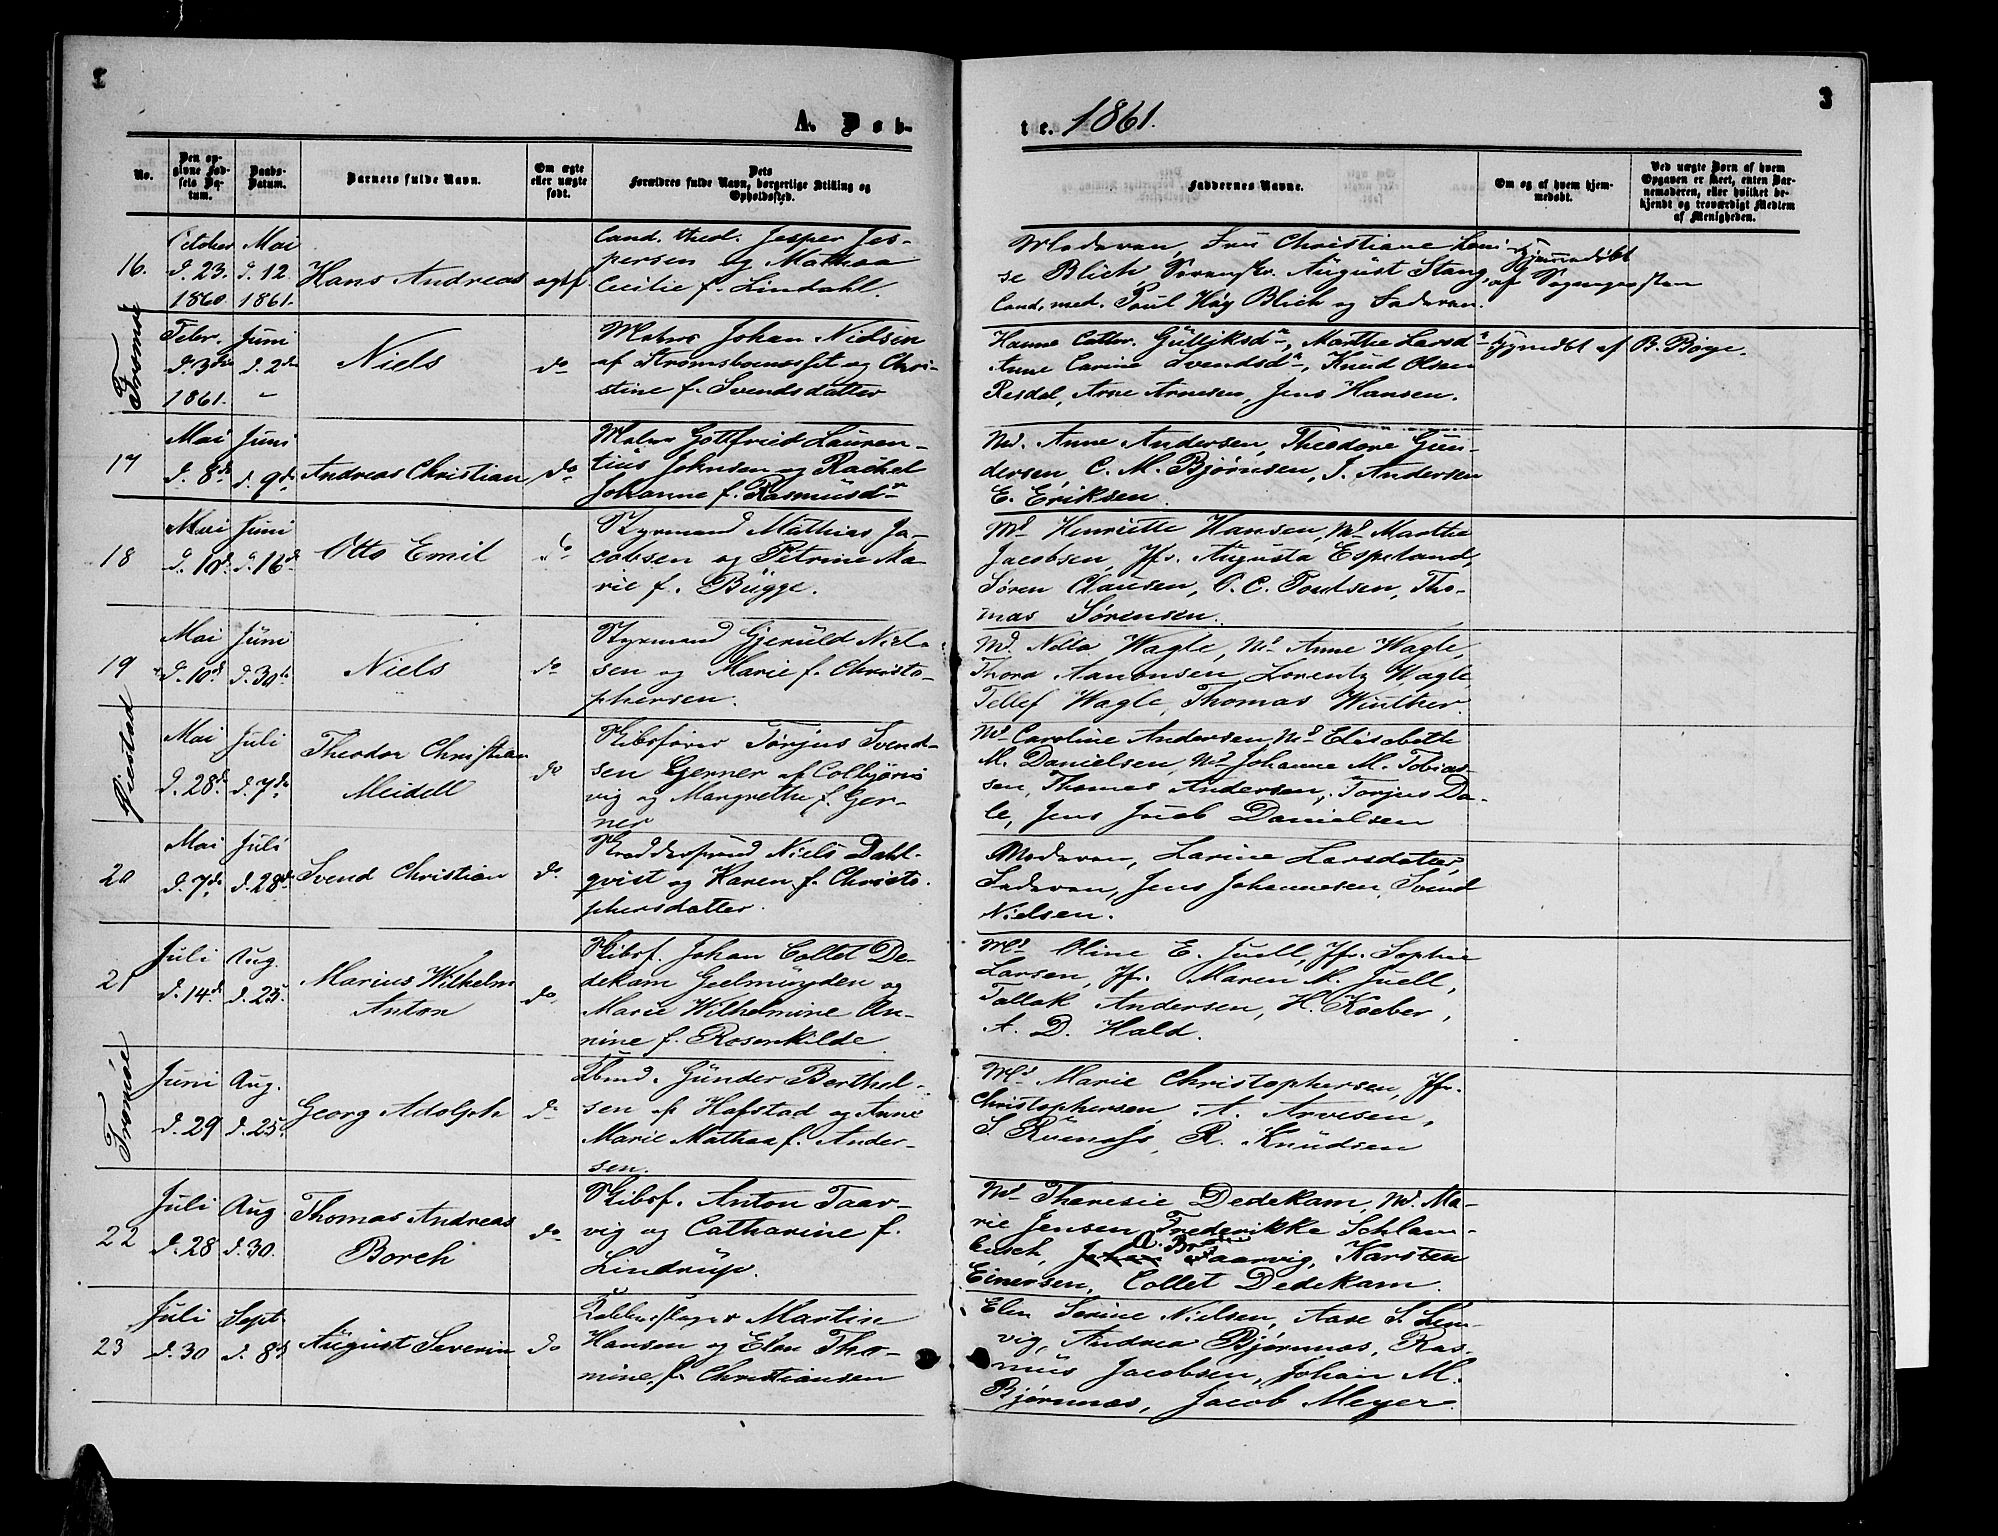 3
A. Døb-
te. 1861.
No.
Den op-
givne Fød-
sels Da-
tum.
Daabs-
Datum.
Barnets fulde Navn.
Om ægte
eller uægte
født.
Dets
Forældres fulde Navn, borgerlige Stilling og
Opholdssted.
Faddernes Navne.
Om og af hvem hjem-
medøbt.
Ved uægte Børn af hvem
Opgaven er skeet, enten Bar-
nemoderen, eller hvilket be-
kjendt og troværdigt Medlem
af Menigheden.
16.
October
d. 23.
1860.
Mai
d. 12.
1861.
Hans Andreas
ægtf.
Cand. theol. Jesper Jes-
persen og Mathea
Cecilie f. Lindahl.
Moderen, Fru Christiane Loui-
se Blich August Stang,
Cand. med. Poul Høg Blich og Faderen.
Hjemmedøbt
af Sognepresten
Tromøe
Febr.
d. 3die
1861.
Juni
d. 2den
"
Niels
do
Matros Johan Nielsen
af Strømsboenæsset og Chri-
stine f. Svendsdatter
Hanne Cathr. Gulliksdr, Marthe Larsdr
Anne Carine Svendsdr, Knud Olsen
Resdal, Arne Arnesen, Jens Hansen.
hjmdbt af B. Børge.
17
Mai
d. 8de
Juni
d. 9de
Andreas Christian
do
Matros Gottfried Lauren-
tius Johnsen og Rachel
Johanne f. Rasmusdr
Md. Anne Andersen, Theodore Gun-
dersen, C. M. Bjørnsen, J. Andersen
E. Eriksen.
18
Mai
d. 10d.
Juni
d. 16d
Otto Emil
do
Styrmand Mathias Ja-
cobsen og Petrine Ma-
rie f. Bugge.
Md Henriette Hansen, Md Marthe
Jacobsen, Jfr. Augusta Espeland,
Søren Clausen, O. C. Poulsen, Tho-
mas Sørensen.
19
Mai
d. 10d.
Juni
d. 30te
Niels
do
Styrmand Gjeruld Niel-
sen og Marie f. Christo-
phersen.
Md. Nella Wagle, Md. Anne Wagle,
Thora Aanonsen, Lorentz Wagle,
Tellef Wagle, Thomas Winther.
Øiestad
Mai
d. 28d.
Juli
d. 7de
Theodor Christian
Meidell
do
Skibsfører Torjus Svend-
sen Gerner af Colbjørns
vig og Margrethe f. Ger-
ner
Md Caroline Andersen, Md Elisabeth
M. Danielsen, Md Johanne M. Tobias-
sen, Thomas Andersen, Torjus Da-
le, Jens Jacob Danielsen
20
Mai
d. 7de
Juli
d. 28d.
Svend Christian
do.
Skræddersvend Niels Dahl-
qvist og Karen f. Christo-
phersdatter.
Moderen, Larine Larsdatter,
Faderen, Jens Johannesen, Svend
Nielsen.
21
Juli
d. 14d.
Aug.
d. 25.
Marius Wilhelm
Anton
do.
Skibsf. Johan Collet De-
dekam Geelmuyden og
Marie Wilhelmine An-
nine f. Rosenkilde
Md Oline E. Juell, Jfr. Sophie
Larsen, Jfr. Maren M. Juell,
Tallak Andersen, H. Koeber,
A. D. Hald.
Tromøe
Juni
d. 29
Aug.
d. 25.
Georg Adolph
do
Gunder Berthel-
sen af Hafstad og Anne
Marie Mathea f. Ander-
sen.
Md Marie Christophersen, Jfr.
Christophersen, A. Arvesen,
S. Ruenæss, R. Knudsen
22
Juli
d. 28
Aug
d. 30.
Thomas Andreas
Borch
do.
Skibsf. Anton Taar-
vig og Catharine f.
Lindrup.
Md Theresie Dedekam, Md. Ma-
rie Jensen, Frederikke Schlam-
busch, Taarvig, Karsten
Einersen, Collet Dedekam.
23
Juli
d. 30
Sept.
d. 8d
August Severin
do
Kobberslager Martin
Hansen og Elen Tho-
mine f. Christiansen
Elen Serine Nielsen, Aase S. Lem-
vig, Andrea Bjørnnæs, Ras-
mus Jacobsen, Johan M.
Bjørnnæs, Jacob Meyer.